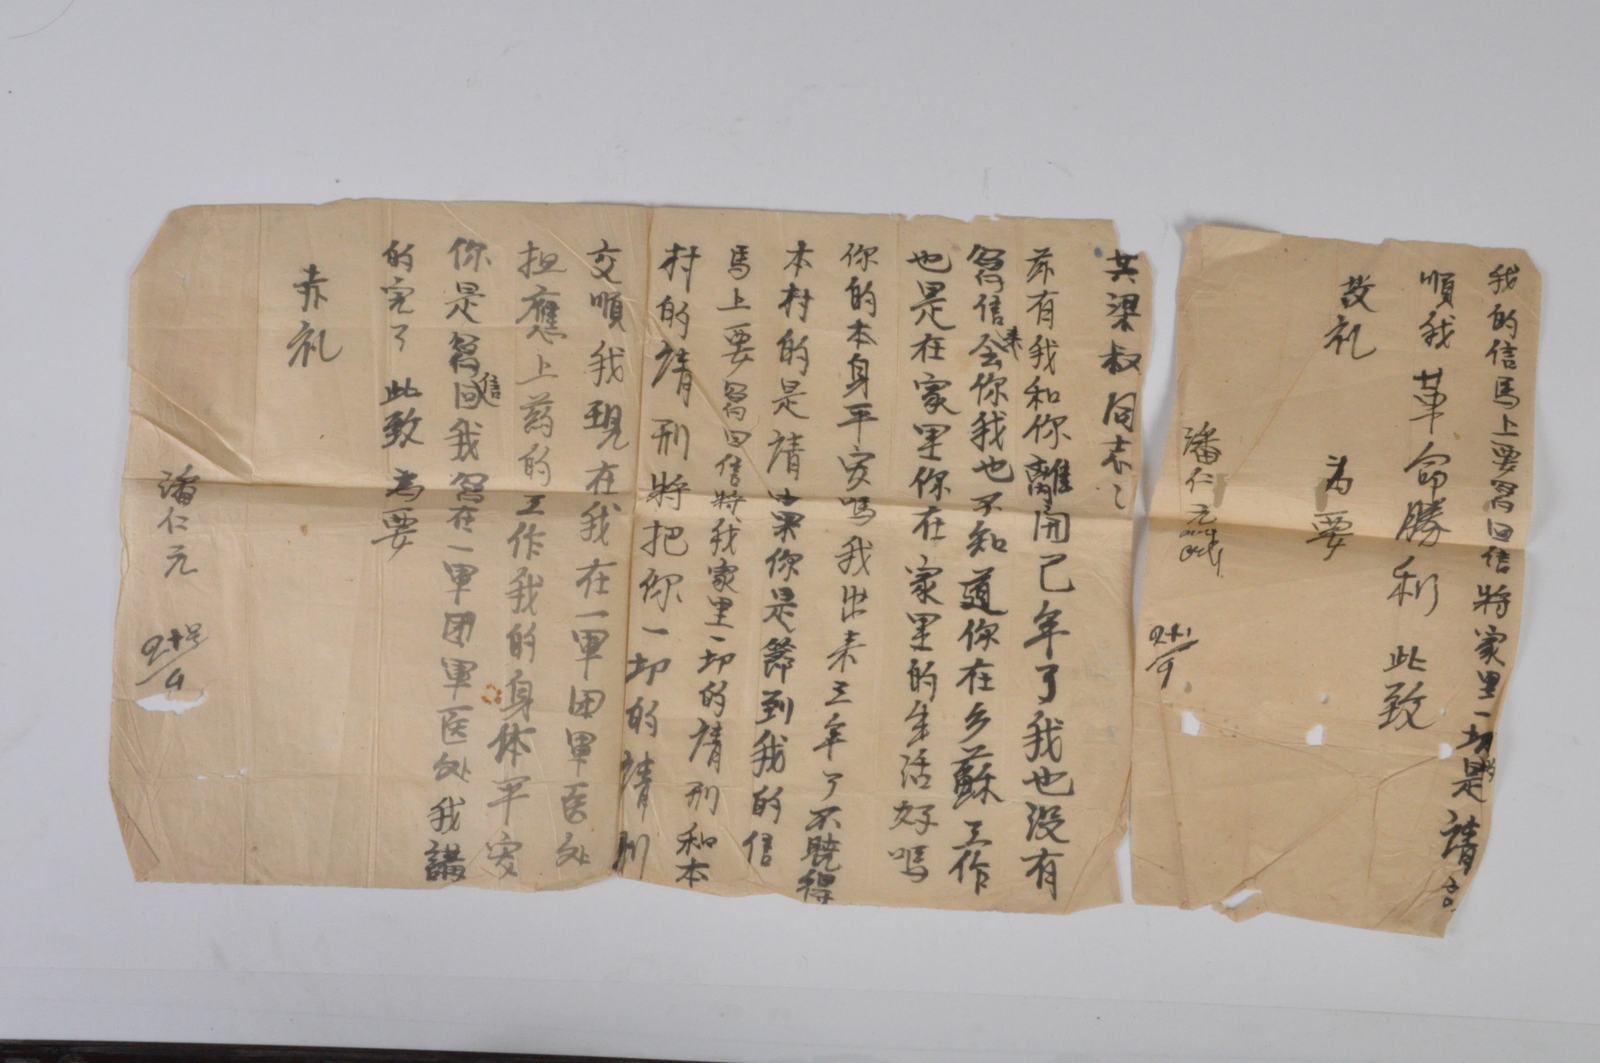 我的信馬上要寫回信將家里一切的是請
順我革命勝利 此致
敬礼 为要
潘仁元
共梁叔同志
茶有我和你離開已年了我也没有
寫信来会你我也不知道你在乡蘇工作
也是在家里你在家里的生活好嗎
你的本身平安嗎我出来三年了不曉得
本村的是請如果你是節到我的信
馬上要寫回信將我家里一切的情刑和本
村的請刑將把你一切的請刑
交順我現在我在一軍团軍医处
担應上葯的工作我的身体平安
你是寫回信我寫在一軍团軍医处我講
的完了 此致为要
赤礼
潘仁元 9/十号